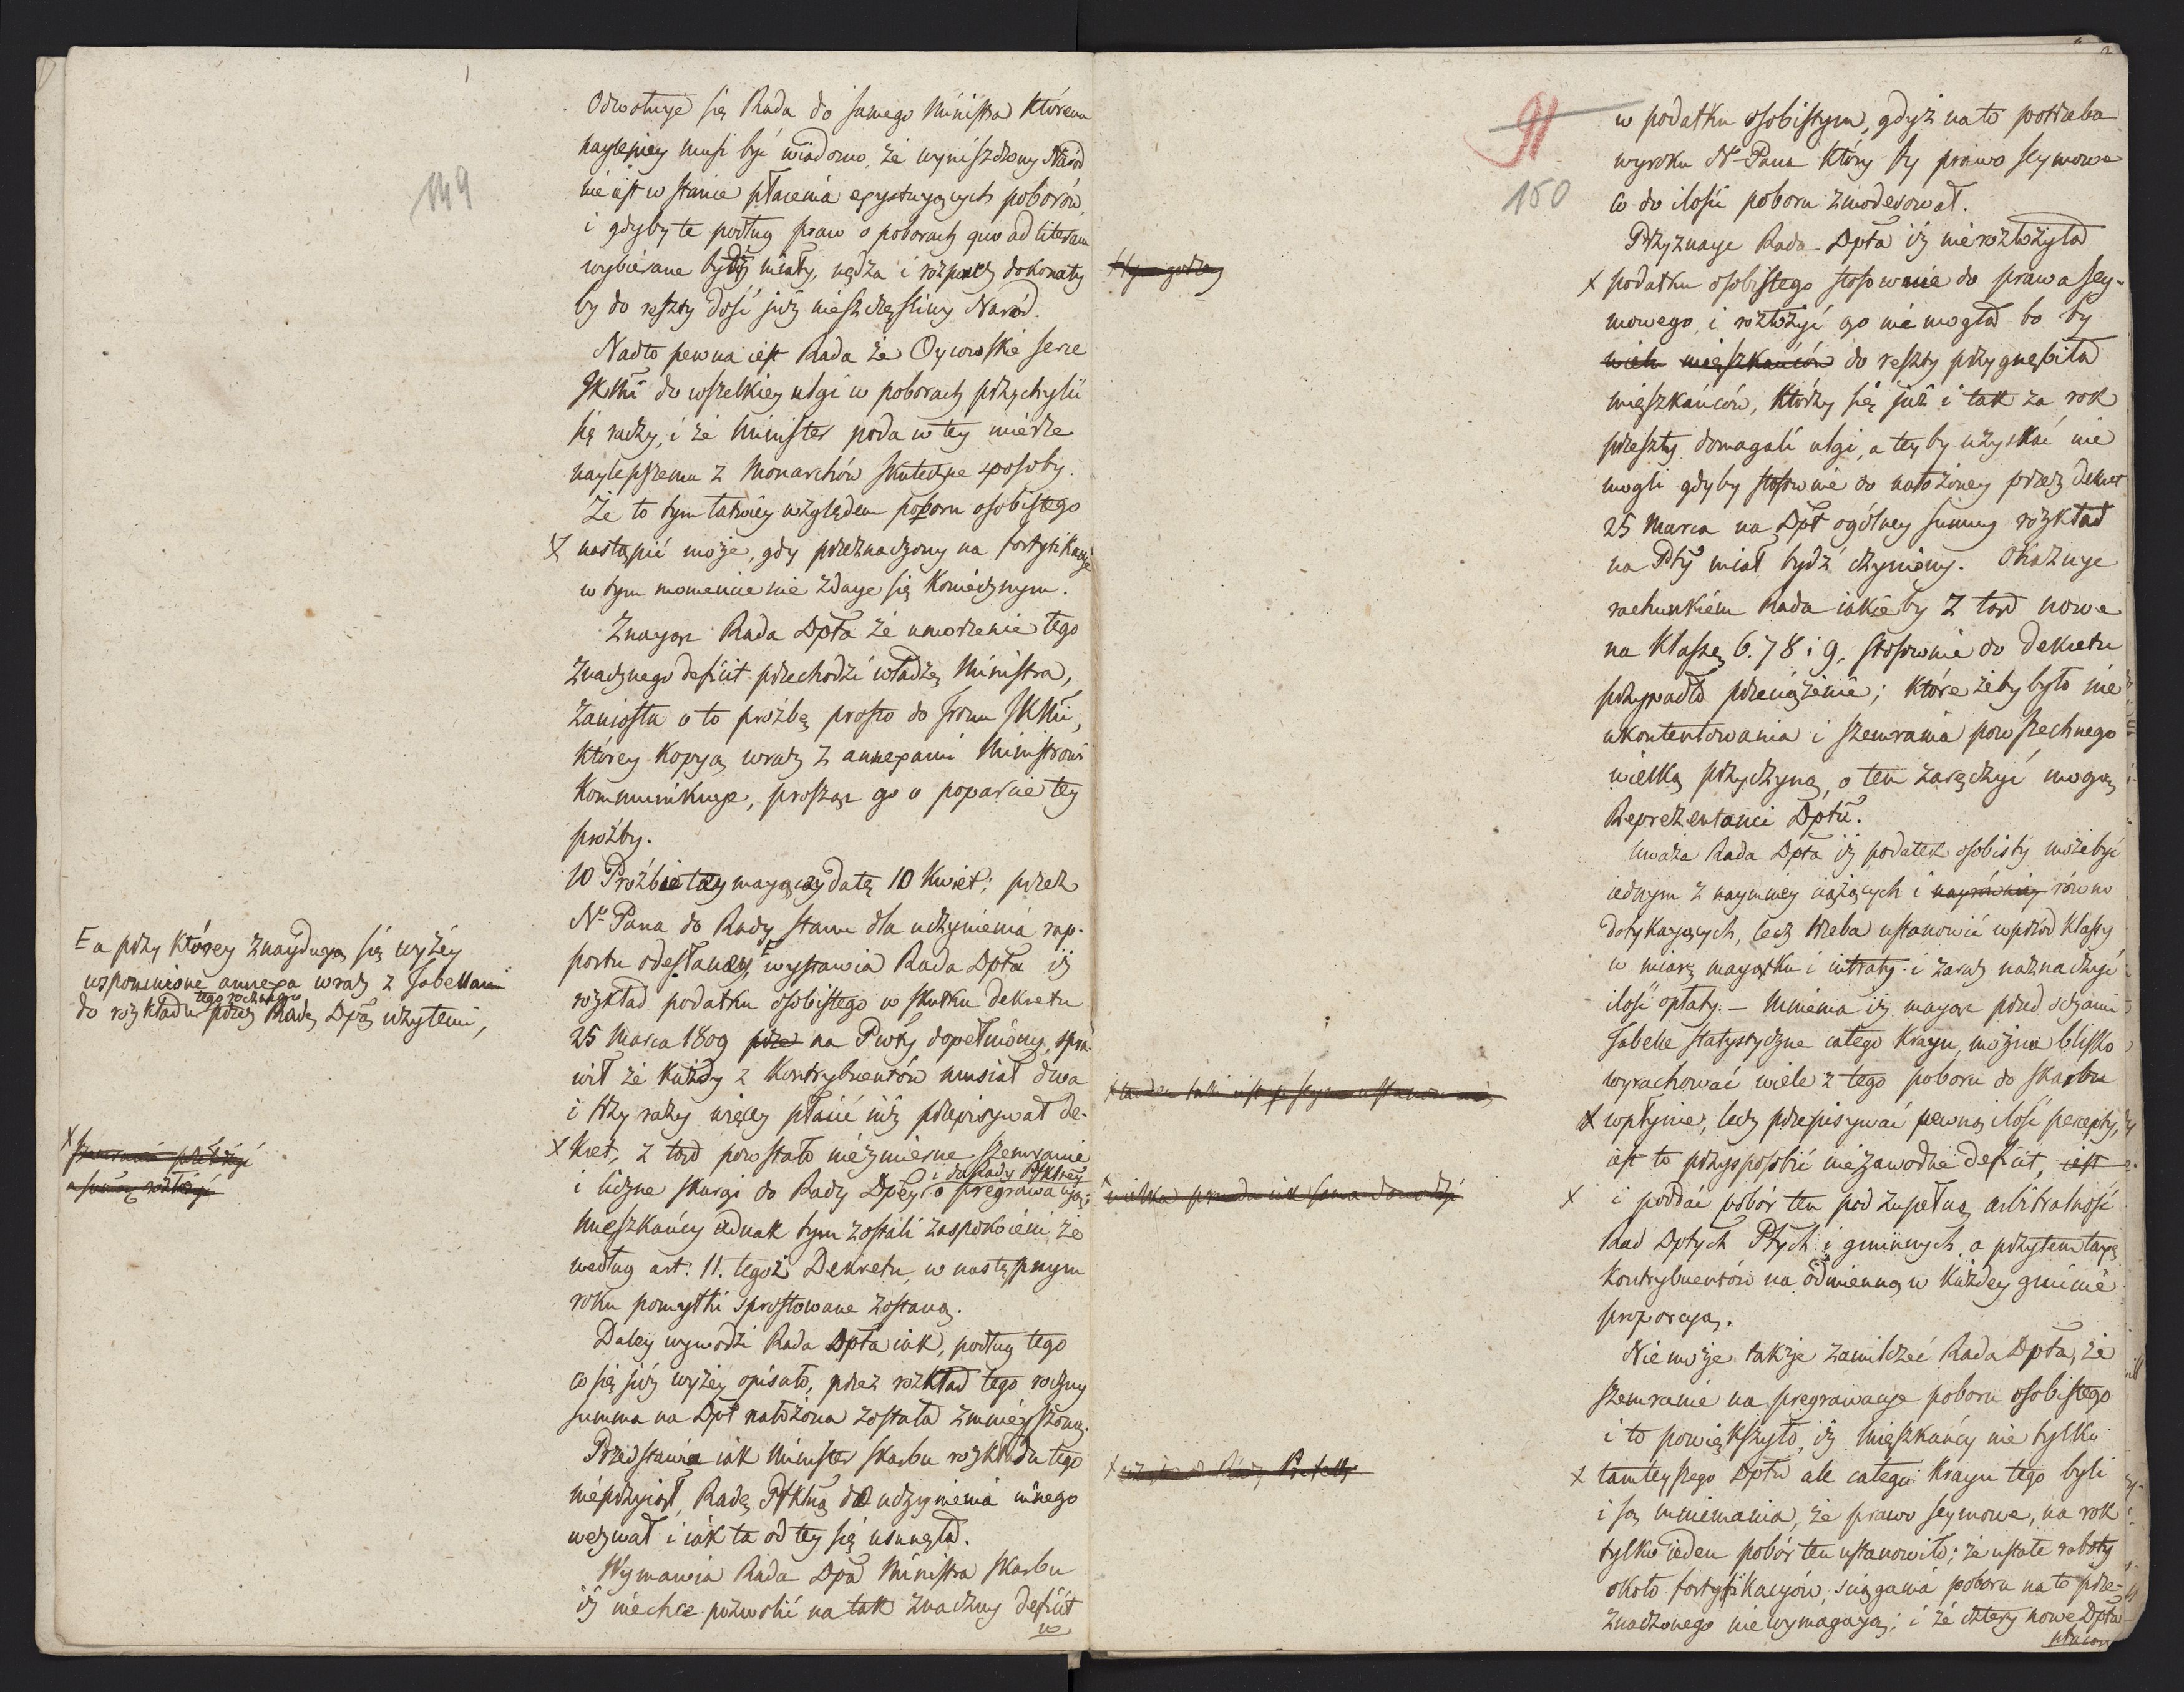 149
Odwołuje się Rada do samego Ministra któremu
naylepiey musi być wiadomo, że wyniszczony Naród
nie iest w stanie płacenia egzystuiących poborów,
i gdyby te podług praw o poborach quo ad literam
wybierane bydź miały, nędza i rozpacz dokonały
by do reszty dość już nieszczęśliwy Naród.
Nadto pewna iest Rada że Oycowskie serce
JKMci do wszelkiey ulgi w poborach przychylić
się raczy, i że Minister poda w tey mierze
naylepszemu z Monarchów skuteczne sposoby.
Że to tym łatwiey względem poboru osobistego
X nastąpić może, gdy przeznaczony na fortyfikacje
w tym momencie nie zdaye się koniecznym.
Znayąc Rada Dpta że umorzenie tego
znacznego deficit przechodzi władzę Ministra,
zaniosła o to proźbę prosto do tronu JKMci,
którey kopyą wraz z annexami Ministrowi
kommunikuye, prosząc go o poparcie tey
proźby.
W Proźbie tey mayącey datę 10 Kwiet: przez
No Pana do Rady stanu dla uczynienia rap-
portu odesłaney, wystawia Rada Dpta iż
rozkład podatku osobistego w skutku dekretu
25 Marca 1809 prze na Pwty dopełniony, spra-
wił że każdy z kontrybuentów musiał dwa
i trzy razy więcey płacić niż przepisywał de-
X kret, z tąd powstało niezmierne szemranie
i do Rady Ptktney
i liczne skargi do Rady Dptey o pregrawacyą;
Mieszkańcy iednak tym zostali zaspokoieni, że
według art: 11. tegoż Dekretu, w następnym
roku pomyłki sprostowane zostaną.
Daley wywodzi Rada Dpta iak, podług tego
co się już wyżey opisało, przez rozkład tego roczny
summa na Dpt nałożona została zmnieyszoną.
Przedstawia iak Minister skarbu rozkładu tego
nieprzyiął, Radę Ptktną do uczynienia innego
wezwał i iak ta od tey się usunęła.
Wymawia Rada Dpta Ministra skarbu
iż nie chce pozwolić na tak znaczny deficit
w
E a przy którey znayduyą się wyżey
wspomnione annexa wraz z Tabellami
tego rocznego
do rozkładu przez Radę Dptą użytemi,
91
150
w podatku osobistym, gdyż na to potrzeba
wyroku No Pana który by prawo seymowe
co do ilości poboru zmoderował.
Przyznaye Rada Dpta iż nie rozłożyła
X podatku osobistego stosownie do prawa sey-
mowego, i rozłożyć go nie mogła bo by
wielu mieszkańców do reszty przygnębiła
mieszkańców, którzy się już i tak za rok
przeszły domagali ulgi, a tey by uzyskać nie
mogli gdyby stosownie do nałożoney przez dekret
25 Marca na Dpt ogólney summy rozkład
na Pty miał bydź czyniony. Okazuye
rachunkiem Rada iakie by z tąd nowe
na klassę 6. 7 8 i 9, stosownie do dekretu
przypadło przeciążenie; które żeby było nie
ukontentowania i szemrania powszechnego
wielką przyczyną, o tem zaręczyć mogą
Reprezentanci Dptu.
Uważa Rada Dpta iż podatek osobisty może być
iednym z naymniey ciążących i równo
dotykayących, lecz trzeba ustanowić wprzód klassy
w miarę mayątku i intraty i zaraz naznaczyć
ilość opłaty. – Mniema iż mayąc przed oczami
Tabelle statystyczne całego krayu, można blisko
wyrachować wiele z tego poboru do skarbu
X wpłynie, lecz przepisywać pewną ilość percepty,
iest to przysposobić niezawodnie deficit, iest
X i poddać pobór ten pod zupełną arbitralność
Rad Dptych Ptych i gminnych, a przytem taxę
kontrybuentów na odmienną w każdey gminie
proporcyą.
Nie może także zamilczeć Rada Dpta, że
szemranie na pregrawacye poboru osobistego
i to powiększyło, iż Mieszkańcy nie tylko
X tamteyszego Dptu ale całego krayu tego byli
i są mniemania, że prawo seymowe, na rok
tylko ieden pobór ten ustanowiło; że ustałe roboty
około fortyfikacyów, ściągania poboru na to prze-
znaczonego nie wymagayą; i że cztery nowe Dpta